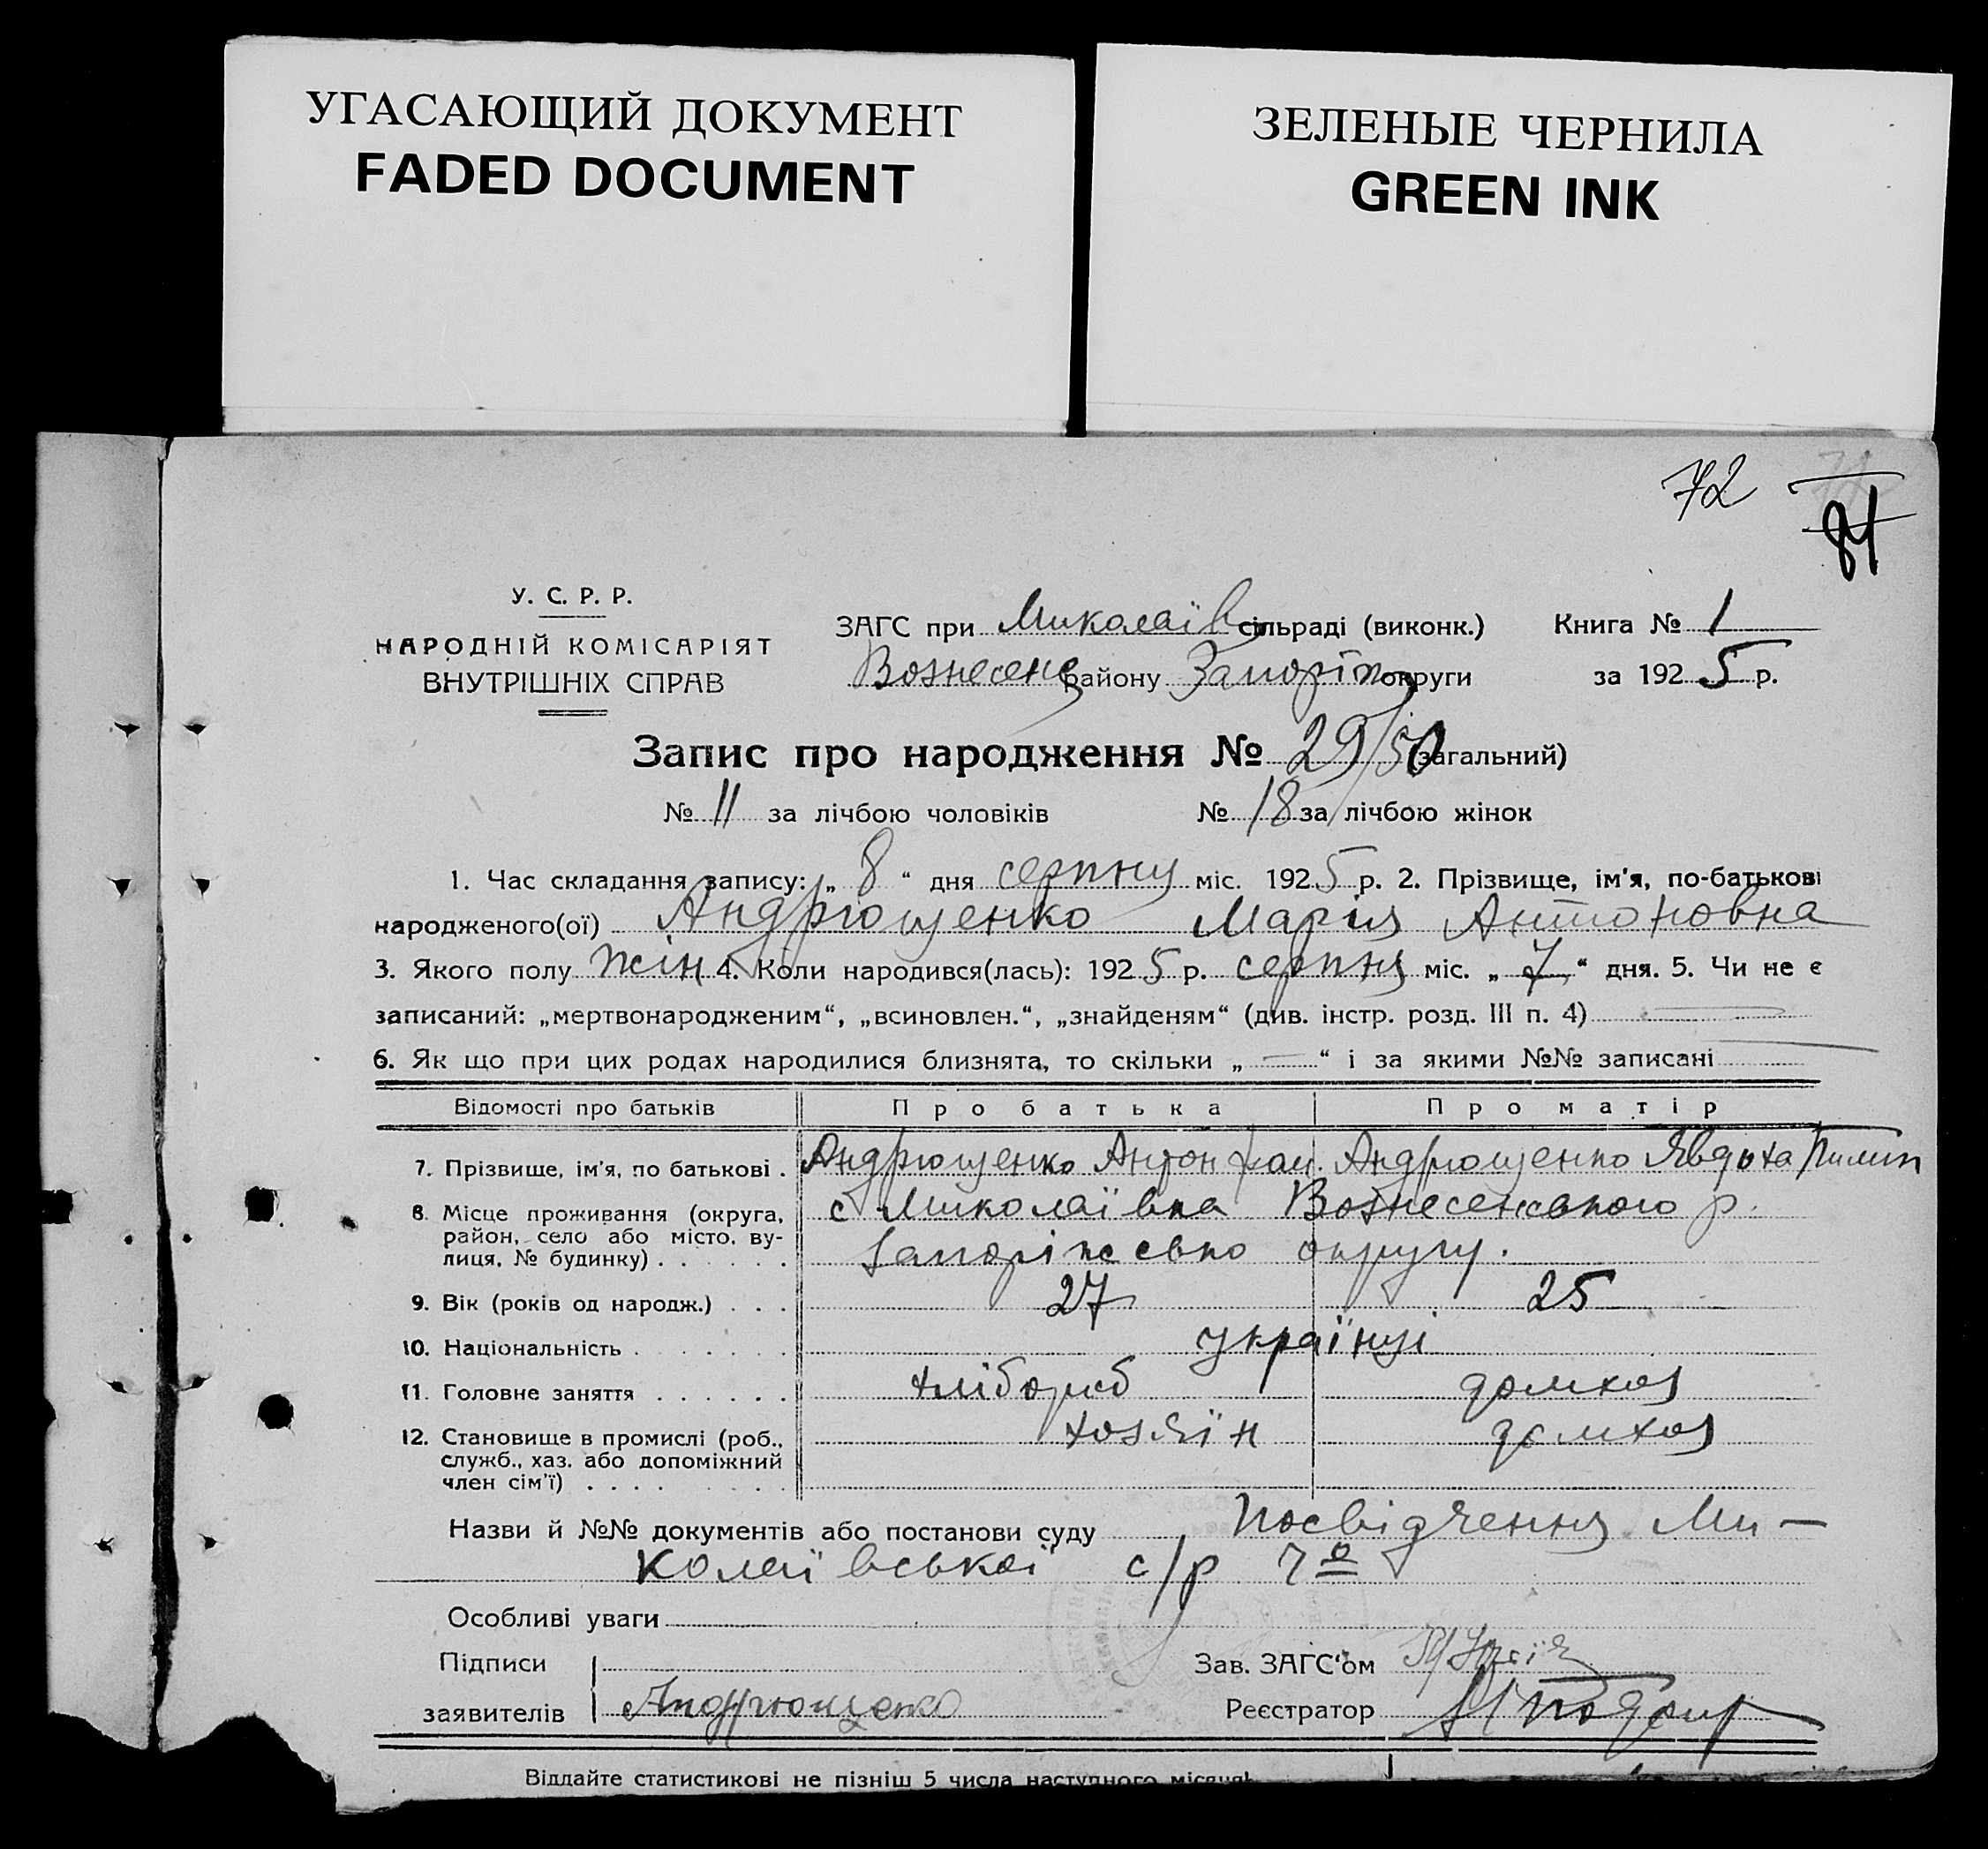 УГАСАЮЩИЙ ДОКУМЕНТ
FADED DOCUMENT
ЗЕЛЕНЫЕ ЧЕРНИЛА
GREEN INK
72
81
У. С. Р. Р.
НАРОДНІЙ КОМІСАРІЯТ
ВНУТРІШНІХ СПРАВ
ЗАГС при Миколаїв сільраді (виконк.) Книга № 1
Вознесенс району Запоріж округи за 1925 р.
Запис про народження № 29/50 (загальний)
№ 11 за лічбою чоловіків № 18 за лічбою жінок
1. Час складання запису: „ 8 “ дня серпня міс. 1925 р. 2. Прізвище, ім'я, по-батькові
народженого(ої) Андрющенко Марія Антоновна
3. Якого полу жін 4. Коли народився(лась): 1925 р. серпня міс. „ 7 “ дня. 5. Чи не є
записаний: „мертвонародженим“, „всиновлен.“, „знайденям“ (див. інстр. розд. III п. 4)
6. Як що при цих родах народилися близнята, то скільки „ — “ і за якими №№ записані
Відомості про батьків Про батька Про матір
7. Прізвище, ім'я, по батькові . Андрющенко Антон Андрющенко Явдоха Пилип
8. Місце проживання (округа, с Миколаївка Вознесенського р.
район, село або місто, ву-
лиця, № будинку) . . . . . . Запоріжсько округу.
9. Вік (років од народж.) . . . 27 25
10. Національність . . . . . . . українці
11. Головне заняття . . . . . . хлібороб домхоз
12. Становище в промислі (роб., хозяїн домхоз
служб., хаз. або допоміжний
член сім'ї) . . . .
Назви й №№ документів або постанови суду Посвідчення Ми—
колаївської с/р
Особливі уваги
Підписи Зав. ЗАГС'ом
заявителів Андрющенко Реєстратор
Віддайте статистикові не пізніш 5 числа наступного місяця!